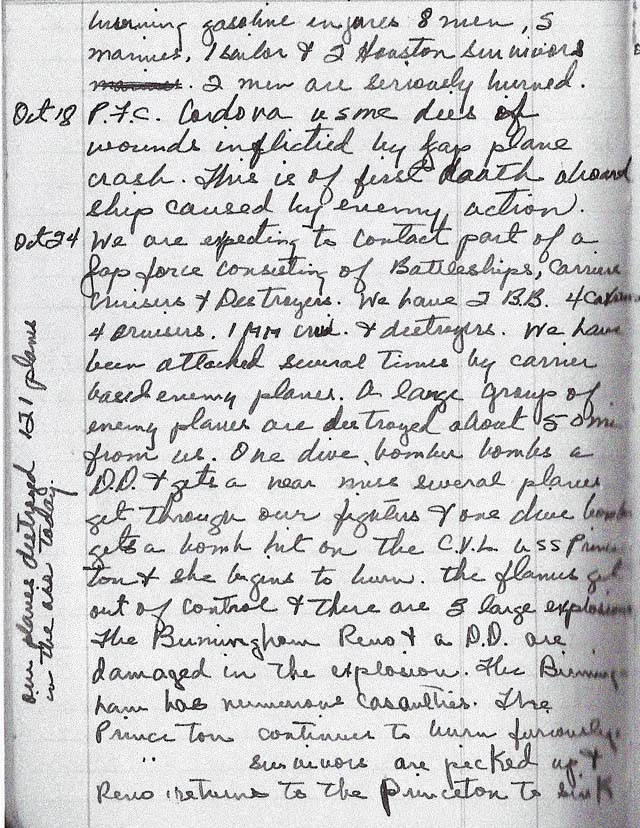 burning gasoline injures 8 men, 5
marines, 1 sailor & 2 Houston survivors
marines. 2 men are seriously burned.
Oct 18 P.F.C. Cordova usmc dies of
wounds inflictied by Jap plane
crash. This is of first death aboard
ship caused by enemy action.
Oct 24 We are expecting to contact part of a
Jap force consisting of Battleships, Carriers
Cruisers & Destroyers. We have 2 B.B. 4
4 Cruisers. 1 & destroyers. We have
been attacked several times by carrier
based enemy planes. A large group of
enemy planes are destroyed about 50 mi
from us. One dive bomber bombs a
D.D. & gets a near miss several planes
get through our fighters & one dive bomber
gets a bomb hit on the C.V.L. USS Prince
ton & she begins to burn. the flames get
out of control & there are 3 large explosions
The Birmingham Reno & a D.D. are
damaged in the explosion. The Birming
ham has numerous casualties. The
Princeton continues to burn furiously.
" survivors are picked up &
Reno returns to the Princeton to sink
our planes destroyed 121 planes
in the air today.